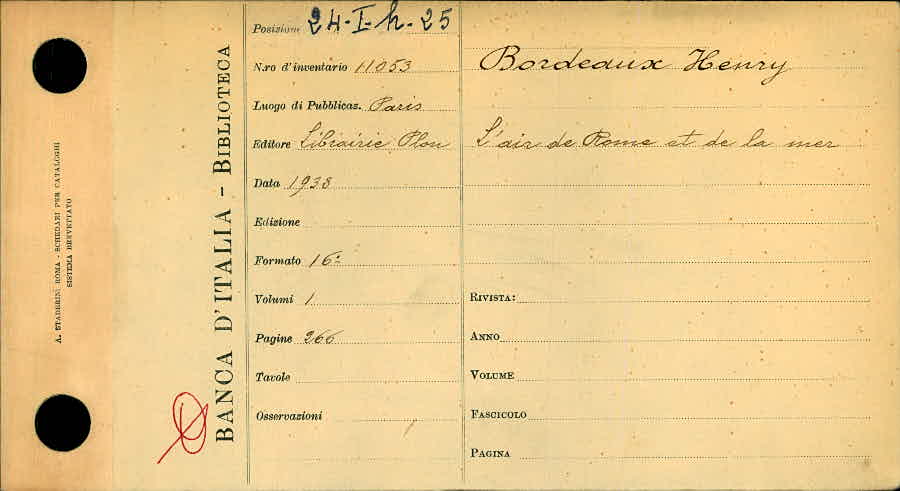 A. STADERINI ROMA - SCHEDARI PER CATALOGHI
SISTEMA BREVETTATO
BANCA D'ITALIA - BIBLIOTECA
Posizione 24-I-h-25
N.ro d'inventario 11053
Luogo di Pubblicaz. Paris
Editore Librairie Plon
Data 1938
Edizione
Formato 16º
Volumi 1
Pagine 266
Tavole
Osservazioni
Bordeaux Henry
L'air de Rome et de la mer
RIVISTA:
ANNO
VOLUME
FASCICOLO
PAGINA